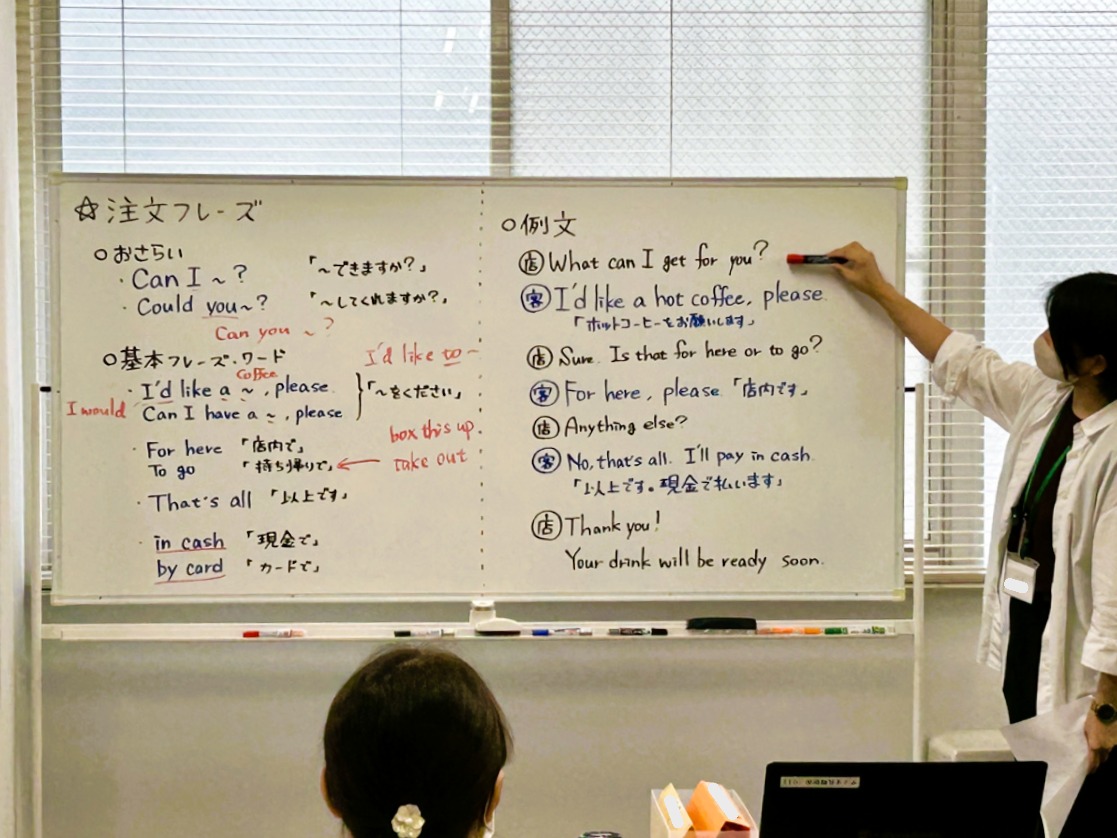 ☆注文フレーズ
○おさらい
・Can I ~? 「~できますか?」
・Could you~? 「~してくれますか?」
Can you ~?
○基本フレーズ・ワード
I'd like to ~
coffee
・I'd like a ~, please.
I would
Can I have a ~, please
「~をください」
box this up.
・For here 「店内で」
To go 「持ち帰りで」 ← take out
・That's all 「以上です」
・in cash 「現金で」
by card 「カードで」
○例文
店 What can I get for you?
客 I'd like a hot coffee, please.
「ホットコーヒーをお願いします」
店 Sure. Is that for here or to go?
客 For here, please 「店内です」
店 Anything else?
客 No, that's all. I'll pay in cash.
「以上です。現金で払います」
店 Thank you!
Your drink will be ready soon.